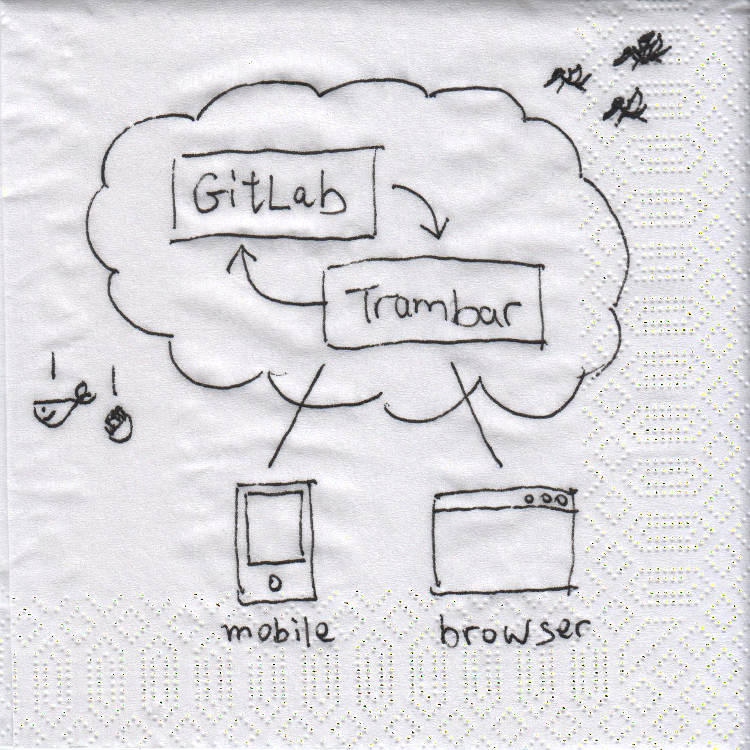 GitLab
Trambar
mobile
browser